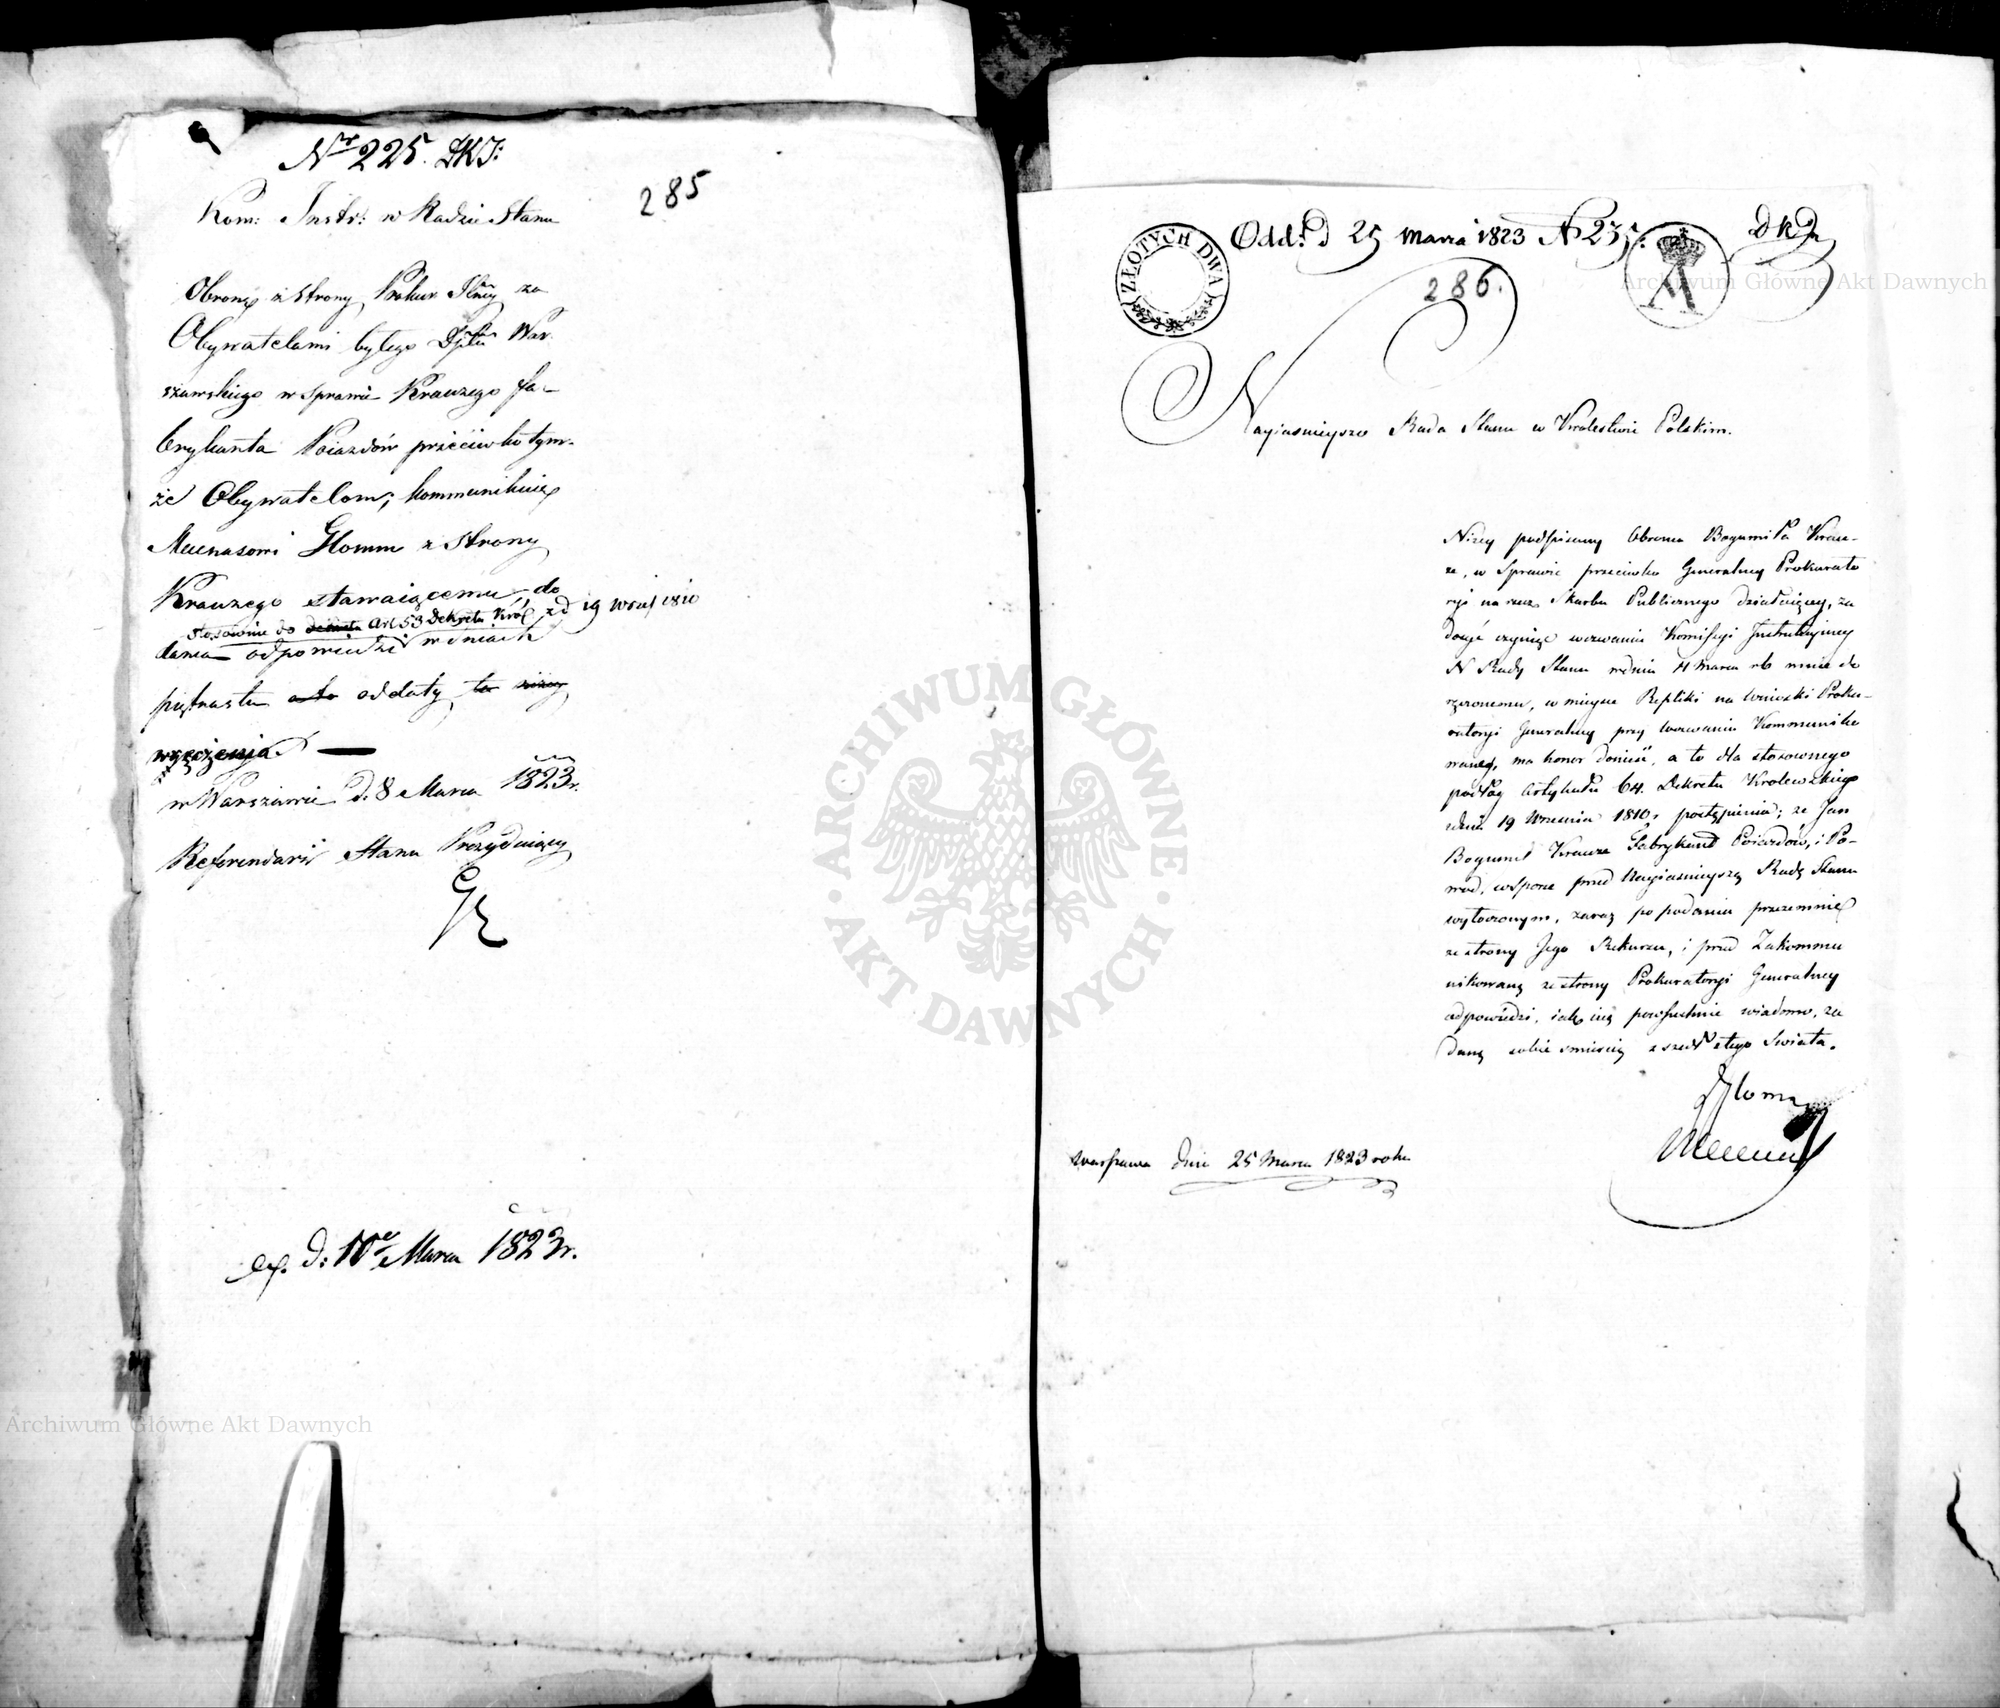 Nr 225. DKJ:
285
Kom: Instr: w Radzie Stanu
Obronę z strony Prokur Jlney za
Obywatelami byłego Dptu War-
szawskiego w sprawie Krauzego fa-
brykanta Poiazdów przeciwko tym-
że Obywatelom, kommunikuię
Mecenasowi Glomm z strony
Krauzego stawaiącemu, do
stosownie do dekretu Art 53 Dekretu Kró z d 19 Wrześ 1810
dania odpowiedzi w dniach
piętnastu oddaty
wręczenia —
w Warszawie d. 8 Marca 1823r.
Referendarz Stanu Prezyduiący
Exp. d: 10 Marca 1823r.
Odd: d 25 Marca 1823 N 235. DKJ
286.
ZŁOTYCH DWA
Nayiaśnieysza Rado Stanu w Krolestwie Polskim.
Niżey podpisany Obronca Bogumiła Krau-
ze, w Sprawie przeciwko Generalney Prokurato
ryi na rzecz Skarbu Publicznego działaiącey, za
dosyć czyniąc wezwaniu Komissyi Instrukcyiney
N Rady Stanu w dniu 11 Marca rb mnie do
ręczonemu, w mieysce Repliki na Wnioski Proku-
ratoryi Generalney przy wezwaniu Kommuniko
waney, ma honor donieść, a to dla stosownego
podług Artykułu 64. Dekretu Krolewskiego
z dnia 19 Wrzesnia 1810r postąpienia; że Jan
Bogumił Krauze Fabrykant Poiazdów, i Po-
wod, w sporze przed Nayiaśnieyszą Radą Stanu
wytoczonym, zaraz po podaniu przezemnie
ze strony Jego Rekursu, i przed Zakommu
nikowaną ze strony Prokuratoryi Generalney
odpowiedzi, iak iuż powszechnie wiadomo, za
daną sobie smiercią zszedł z tego Swiata.
Glomm
Mecenas
Warszawa dnia 25 Marca 1823 roku
ARCHIWUM GŁÓWNE AKT DAWNYCH
Archiwum Główne Akt Dawnych
Archiwum Główne Akt Dawnych